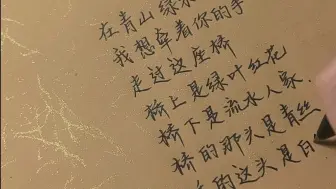 在青山绿水
我想牵着你的手
走过这座桥
桥上是绿叶红花
桥下是流水人家
桥的那头是青丝
的这头是白